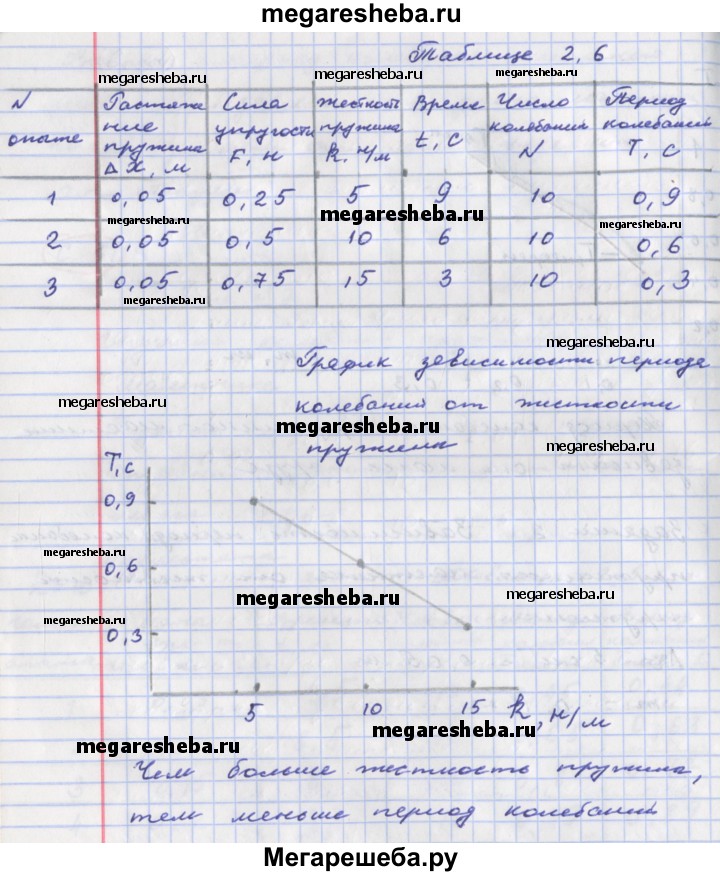 megaresheba.ru
Таблице 2,6
megaresheba.ru megaresheba.ru megaresheba.ru
N опыте | Растяжение пружина Δx, м | Сила упругости F, н | жесткость пружина k, н/м | Время t, с | Число колебаний N | Период колебаний T, с
1 | 0,05 | 0,25 | 5 | 9 | 10 | 0,9
megaresheba.ru megaresheba.ru megaresheba.ru
2 | 0,05 | 0,5 | 10 | 6 | 10 | 0,6
3 | 0,05 | 0,75 | 15 | 3 | 10 | 0,3
megaresheba.ru megaresheba.ru
График зависимости периода
megaresheba.ru
колебаний от жесткости
megaresheba.ru
пружина
megaresheba.ru
T, с
0,9
megaresheba.ru
0,6
megaresheba.ru megaresheba.ru
megaresheba.ru
0,3
5 10 15 k, н/м
megaresheba.ru
megaresheba.ru
Чем больше жесткость пружина,
тем меньше период колебаний
Мегарешеба.ру